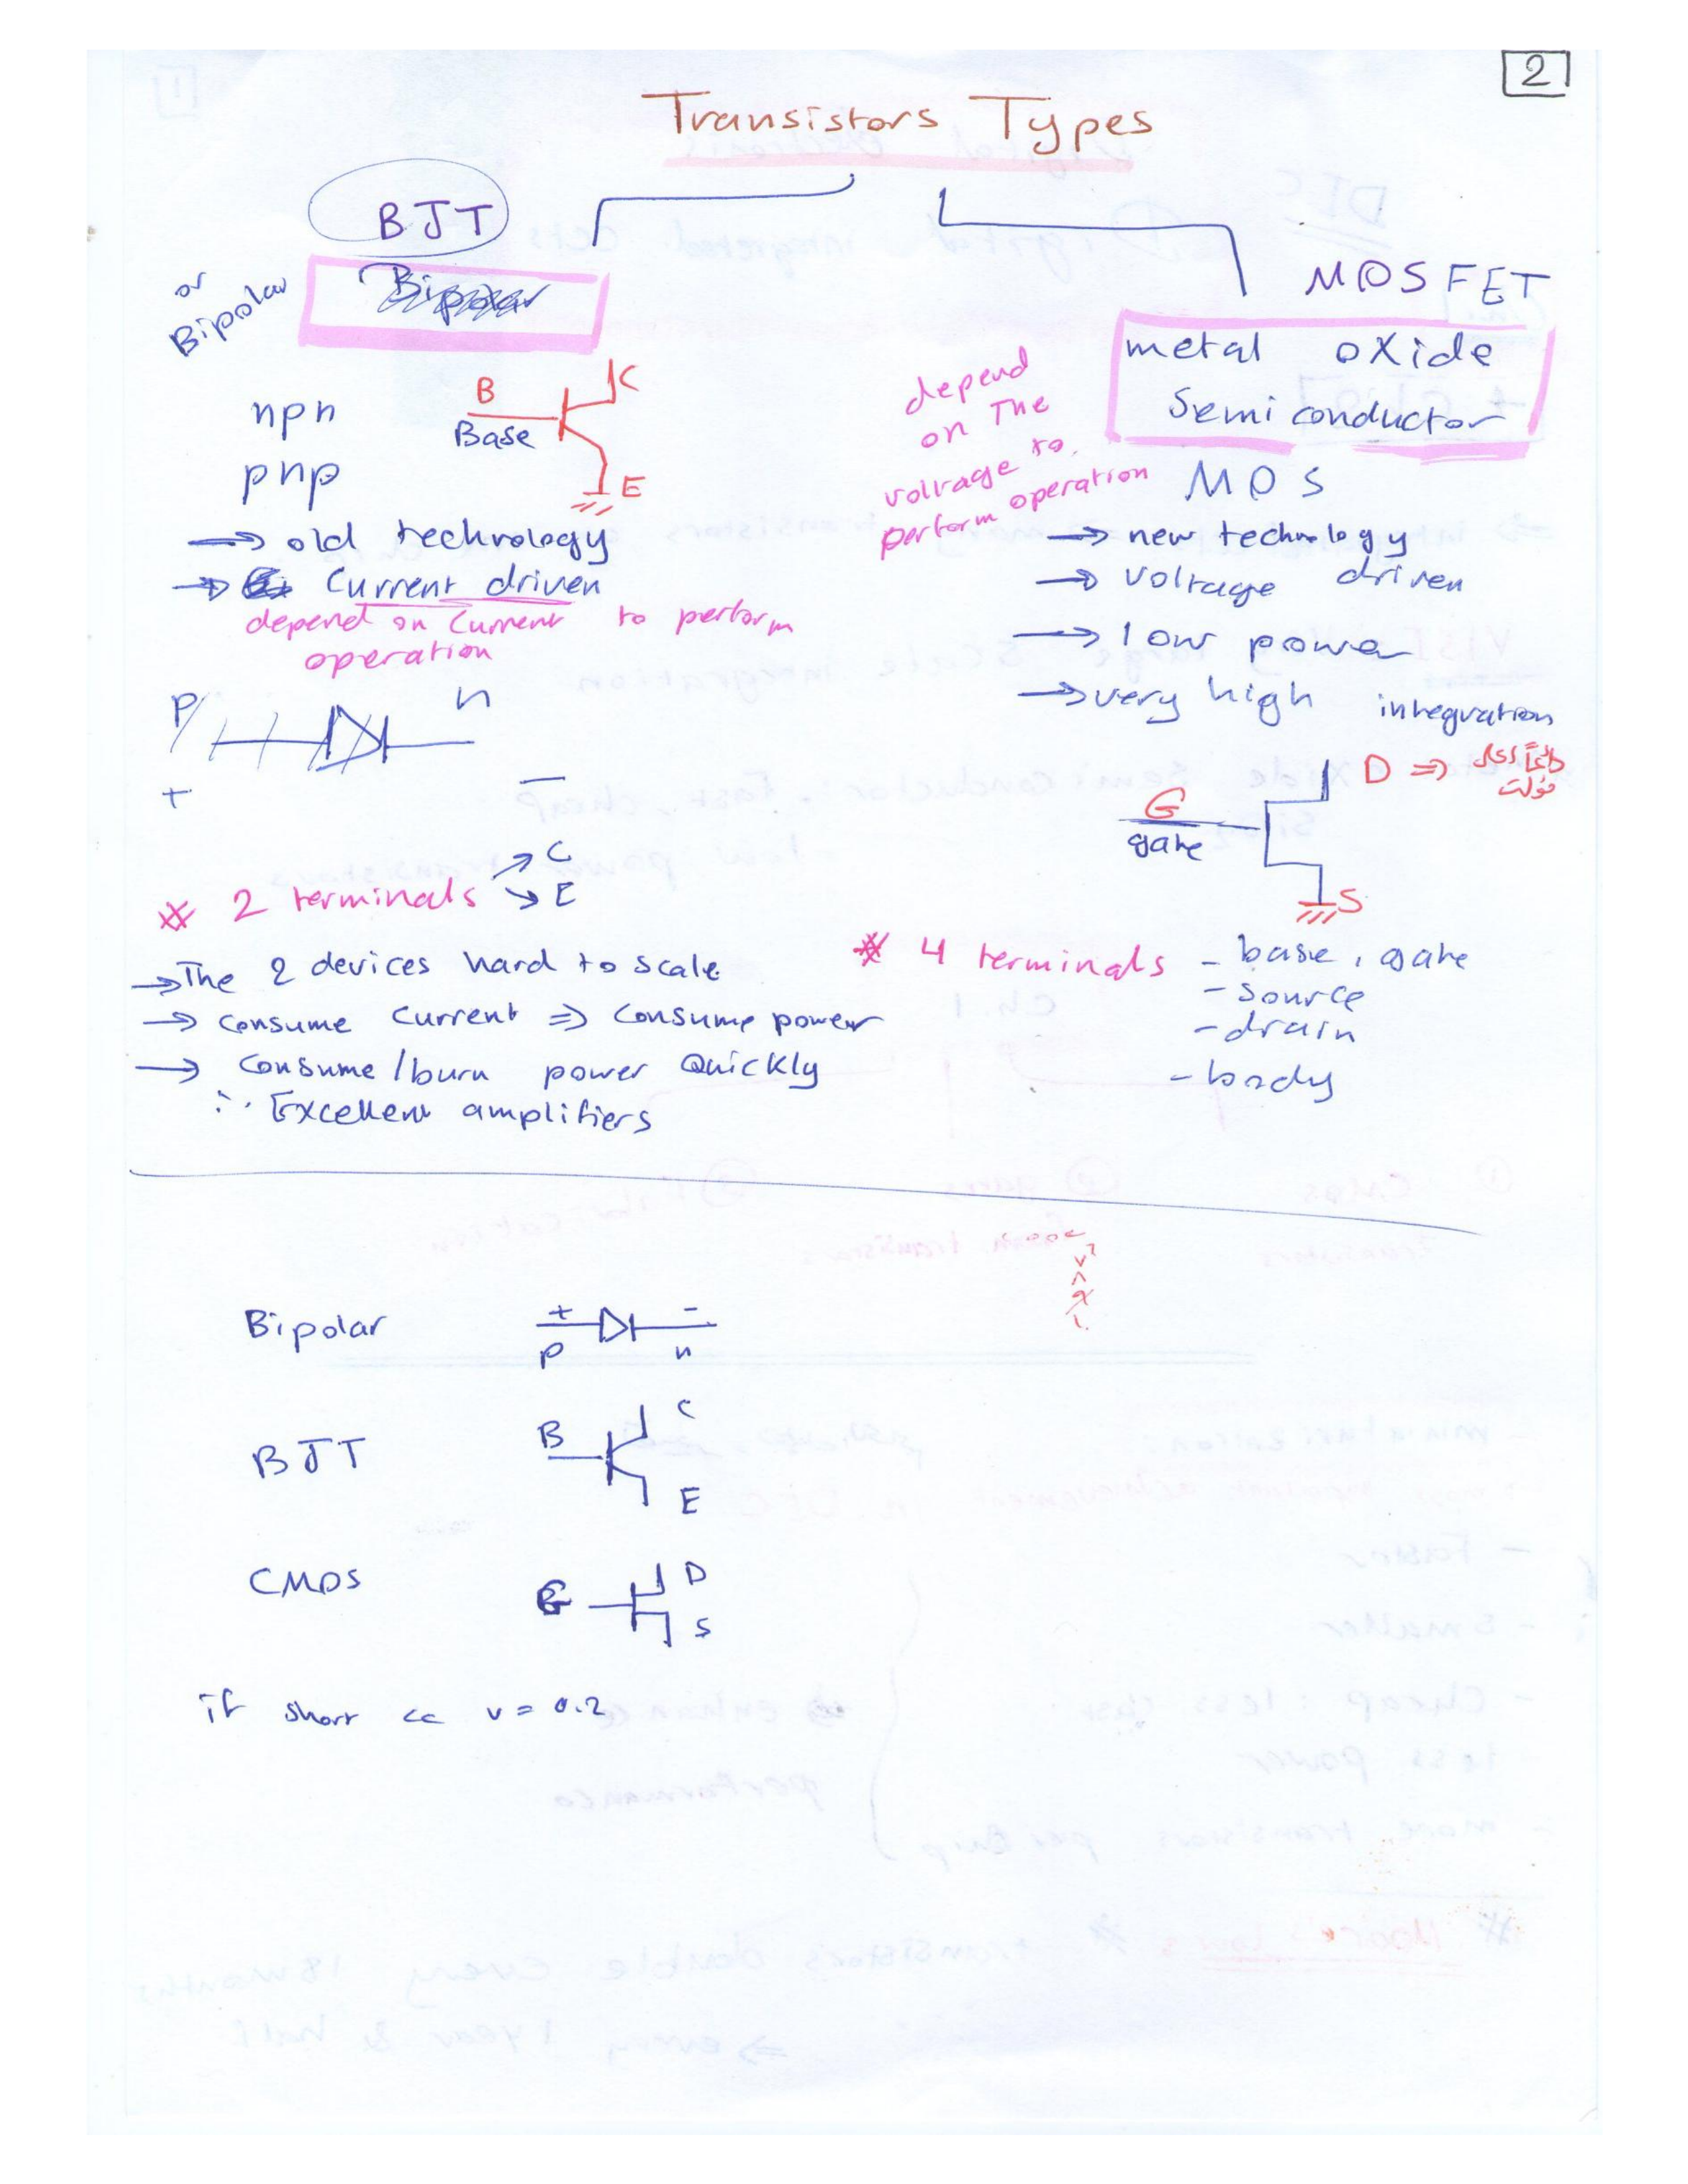 2
Transistors Types
BJT
or
Bipolar
Bipolar
npn
pnp
B
Base
C
E
→ old technology
→ Current driven
depend on current to perform
operation
P
n
+
−
# 2 terminals → C
→ E
→ The 2 devices hard to scale
→ consume current ⇒ consume power
→ consume/burn power Quickly
∴ Excellent amplifiers
MOSFET
metal oxide
Semi conductor
MOS
depend
on The
voltage to
perform operation
→ new technology
→ voltage driven
→ low power
→ very high integration
G
gate
D ⇒ دائماً
فولت
S
# 4 terminals - base, gate
- source
- drain
- body
Bipolar
+ −
p n
BJT
B
C
E
CMOS
G
D
S
if short cc v = 0.2